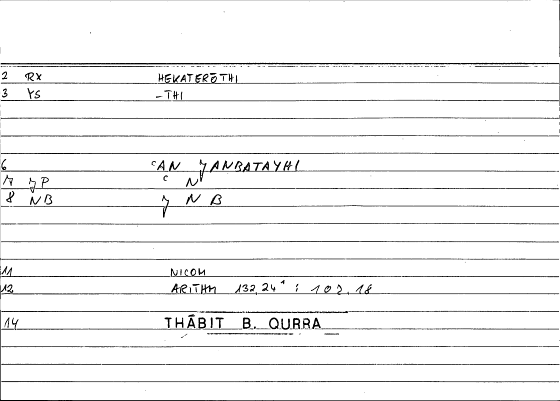 2 RX HEKATERŌTHI
3 YS -THI
6 ᶜAN ȷANBATAYHI
17 ȷP ᶜ N
8 NB ȷ N B
11 NICOM
12 ARITHM 132,24⁺ : 102,18
14 THĀBIT B. QURRA